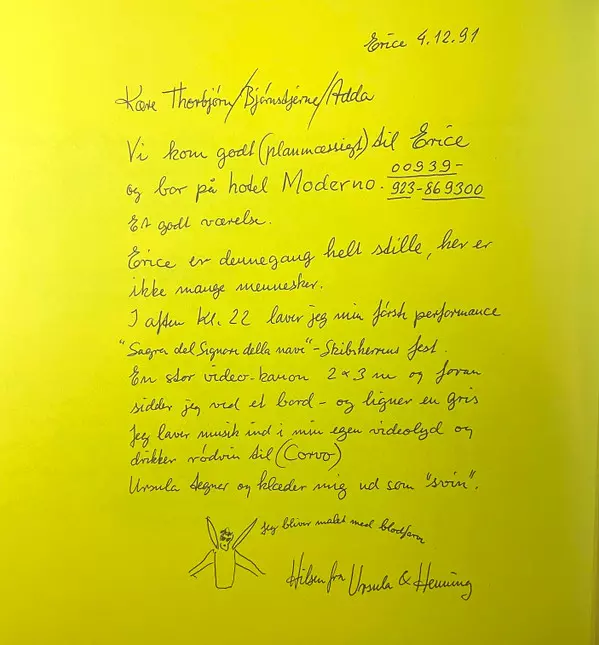 Erice 4.12.91
Kære Thorbjörn/Bjørnstjerne/Adda
Vi kom godt (planmæssigt) til Erice
og bor på hotel Moderno. 00939-
923-869300
Et godt værelse.
Erice er dennegang helt stille, her er
ikke mange mennesker.
I aften kl. 22 laver jeg min første performance
"Sagra del Signore della nave" - Skibsherrens fest.
En stor video-kanon 2x3 m og foran
sidder jeg ved et bord - og ligner en gris
Jeg laver musik ind i min egen videolyd og
drikker rödvin til (Corvo)
Ursula tegner og klæder mig ud som "svin".
Jeg bliver malet med blodfarve
Hilsen fra Ursula & Henning